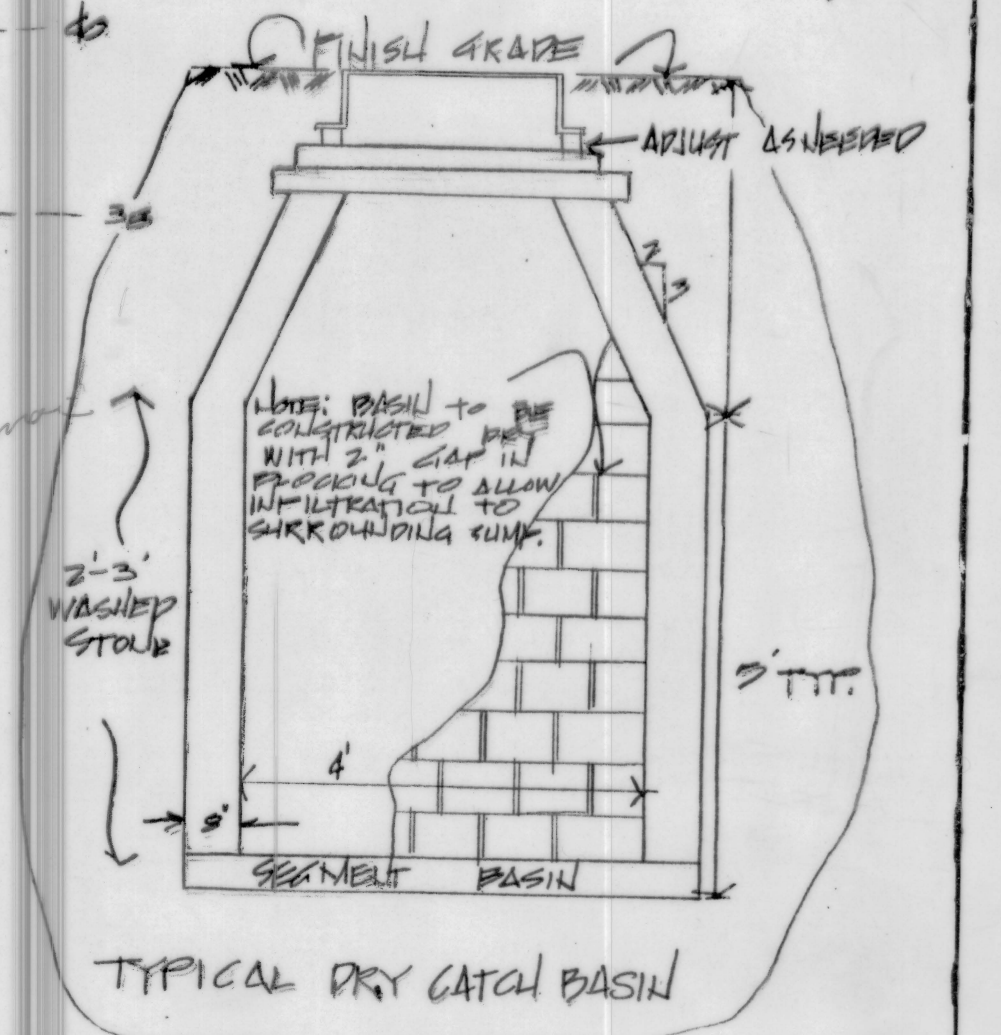 FINISH GRADE
ADJUST AS NEEDED
2
3
NOTE: BASIN TO BE
CONSTRUCTED DRY
WITH 2" GAP IN
BLOCKING TO ALLOW
INFILTRATION TO
SURROUNDING SUMP.
2'-3'
WASHED
STONE
5' TYP.
4'
8"
SEGMENT BASIN
TYPICAL DRY CATCH BASIN